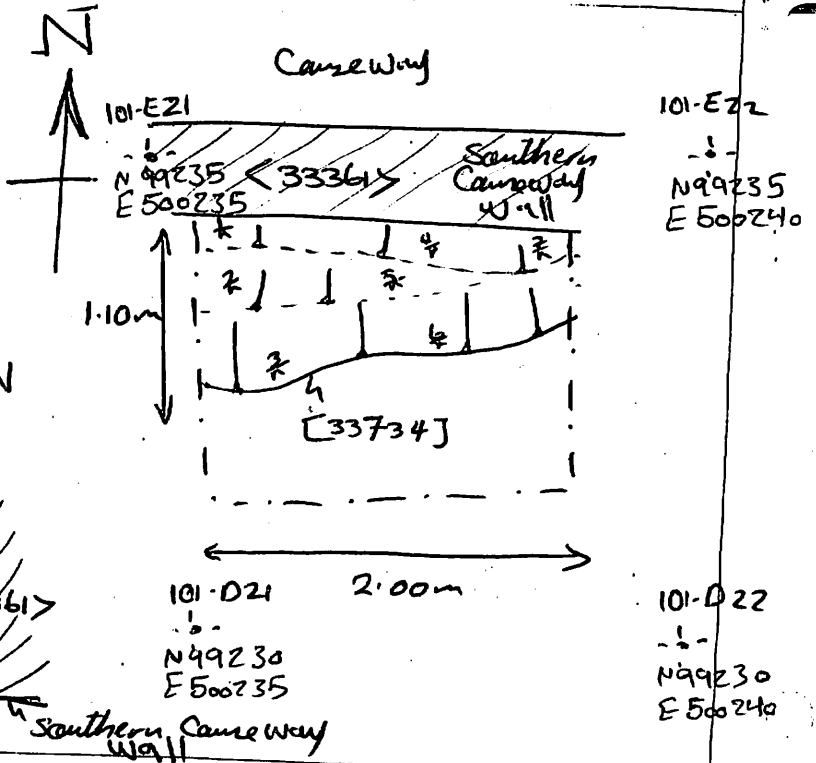 N
Causeway
101-E21
101-E22
N 99235
E 500235
<33361>
Southern
Causeway
Wall
N99235
E 500240
1
4
7
2
5
1.10m
3
6
[33734]
2.00m
61>
101-D21
N99230
E 500235
101-D22
N99230
E 500240
Southern Causeway
Wall